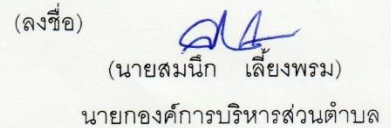 (ลงชื่อ)
(นายสมนึก เลี้ยงพรม)
นายกองค์การบริหารส่วนตำบล